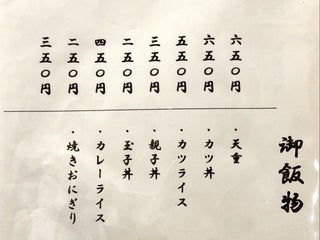 御飯物
六五〇円
・天重
六五〇円
・カツ丼
五五〇円
・カツライス
三五〇円
・親子丼
二五〇円
・玉子丼
四五〇円
・カレーライス
二五〇円
・焼きおにぎり
三五〇円